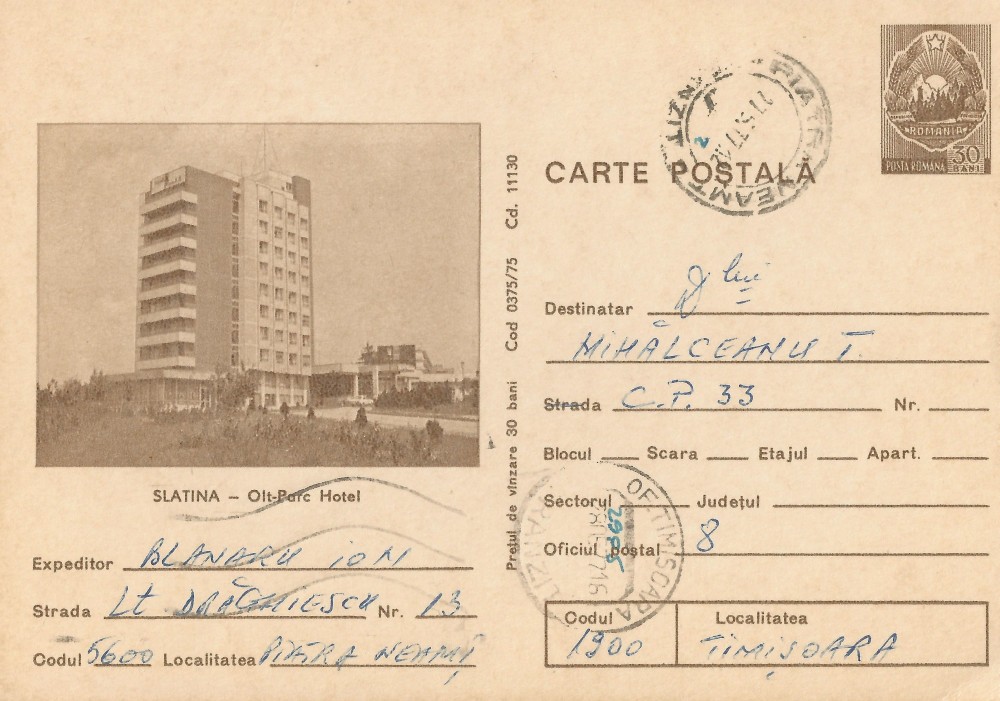 ROMANIA
POSTA ROMANA 30 BANI
CARTE POȘTALĂ
PIATRA NEAMȚ
SLATINA – Olt-Parc Hotel
Expeditor BLANARU ION
Strada Lt. DRĂGHIESCU Nr. 13
Codul 5600 Localitatea PIATRA NEAMȚ
Prețul de vînzare 30 bani Cod 0375/75 Cd. 11130
Destinatar Dlui
MIHĂLCEANU T.
Strada C.P. 33 Nr.
Blocul Scara Etajul Apart.
Sectorul Județul
Oficiul poștal 8
OF. TIMISOARA
Codul Localitatea
1900 TIMIȘOARA